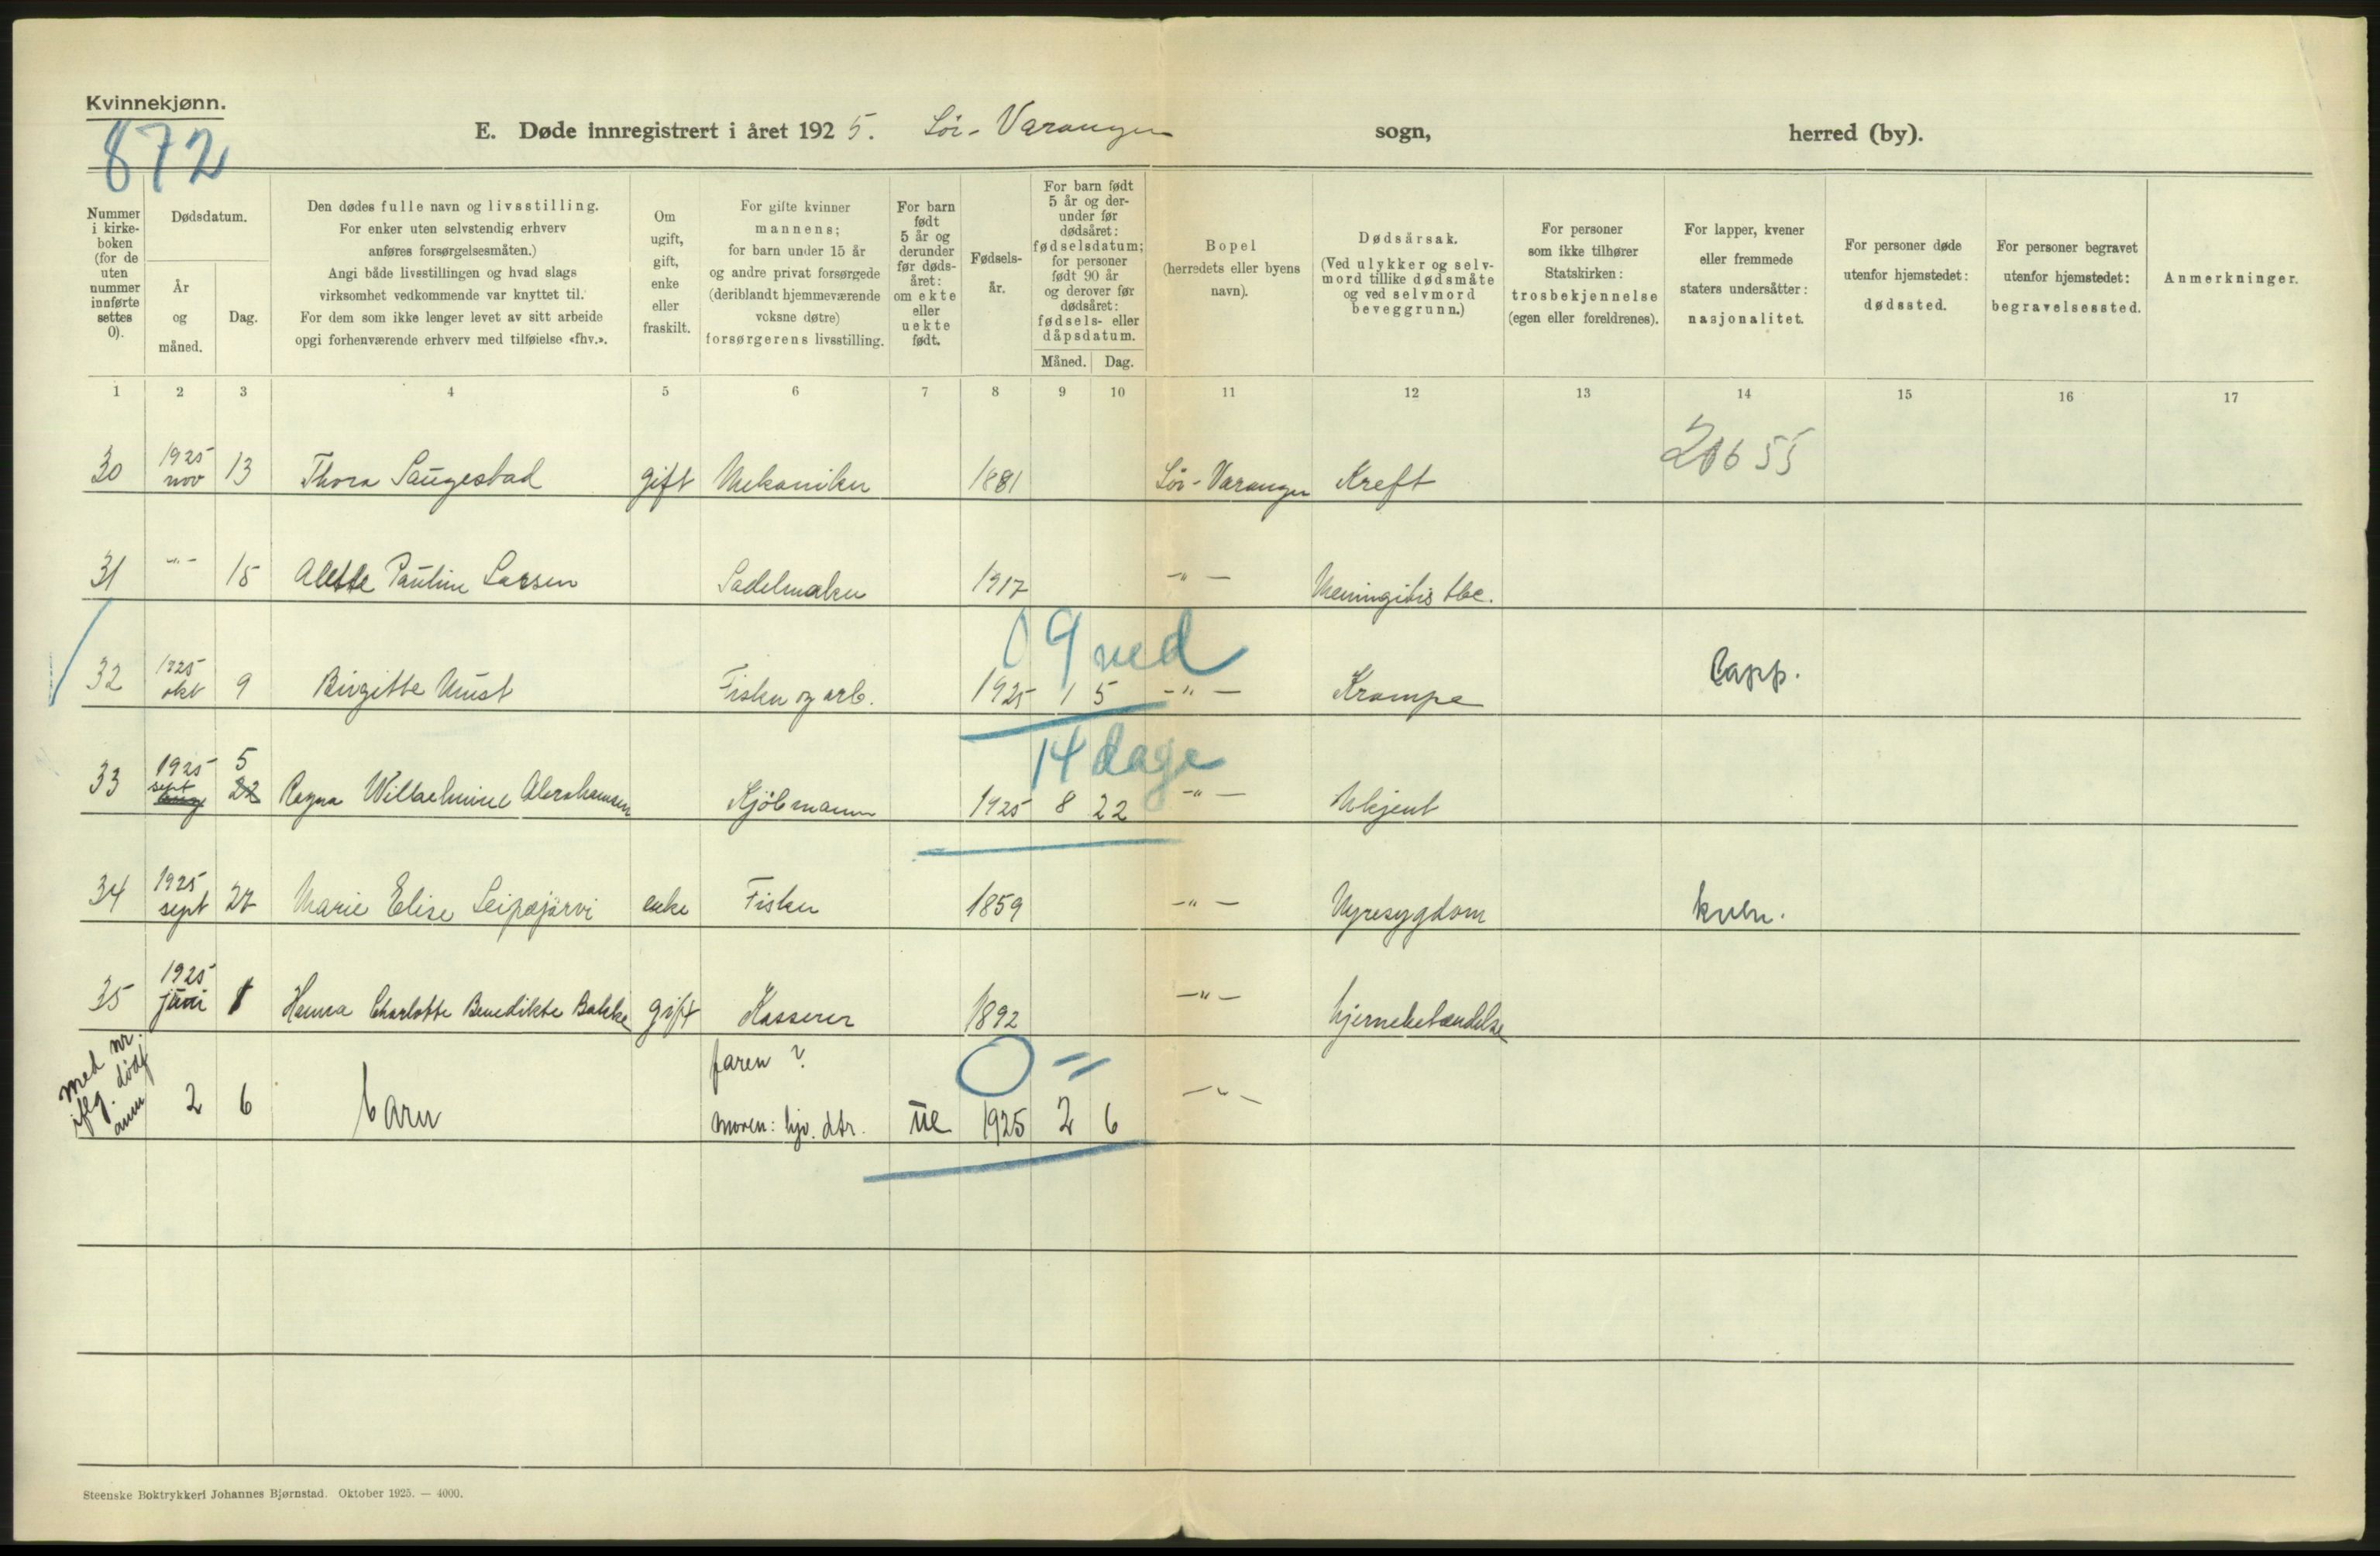 Kvinnekjønn.
872
E. Døde innregistrert i året 1925. Sör-Varanger sogn, herred (by).
Nummer i kirke-boken (for de uten nummer innførte settes 0).
Dødsdatum.
År og måned.
Dag.
Den dødes fulle navn og livsstilling.
For enker uten selvstendig erhverv
anføres forsørgelsesmåten.)
Angi både livsstillingen og hvad slags
virksomhet vedkommende var knyttet til.
For dem som ikke lenger levet av sitt arbeide
opgi forhenværende erhverv med tilføielse «fhv.».
Om ugift, gift, enke eller fraskilt.
For gifte kvinner
mannens;
for barn under 15 år
og andre privat forsørgede
(deriblandt hjemmeværende
voksne døtre)
forsørgerens livsstilling.
For barn født 5 år og derunder før døds-året: om ekte eller uekte født.
Fødsels-år.
For barn født 5 år og der-under før dødsåret: fødselsdatum; for personer født 90 år og derover før dødsåret: fødsels- eller dåpsdatum.
Måned. Dag.
Bopel
(herredets eller byens
navn).
Dødsårsak.
(Ved ulykker og selv-
mord tillike dødsmåte
og ved selvmord
beveggrunn.)
For personer
som ikke tilhører
Statskirken:
trosbekjennelse
(egen eller foreldrenes).
For lapper, kvener
eller fremmede
staters undersåtter:
nasjonalitet.
For personer døde
utenfor hjemstedet:
dødssted.
For personer begravet
utenfor hjemstedet:
begravelsessted.
Anmerkninger.
1 2 3 4 5 6 7 8 9 10 11 12 13 14 15 16 17
30 1925 nov 13 Thora Saugestad gift Mekaniker 1881 Sör-Varanger Kreft
31 -"- 15 Alette Pauline Larsen Sadelmaker 1917 -"- Meningitis tbc.
09 med
32 1925 okt 9 Birgitte Must Fisker og arb. 1925 1 5 -"- Krampe Lapp.
14 dage
33 1925 sept 5 22 Ragna Wilhelmine Abrahamsen Kjöbmann 1925 8 22 -"- Ukjent
34 1925 sept 27 Marie Elise Leipæjärvi enke Fisker 1859 -"- Nyresygdom kven.
35 1925 juni 1 Hanna Charlotte Benedikte Bakke gift Kasserer 1892 -"- hjernebetændelse
med nr.
iflg. dødf
anm
faren ?
0 =
2 6 barn moren: hjv. dtr. ue 1925 2 6 -"-
Steenske Boktrykkeri Johannes Bjørnstad. Oktober 1925. — 4000.